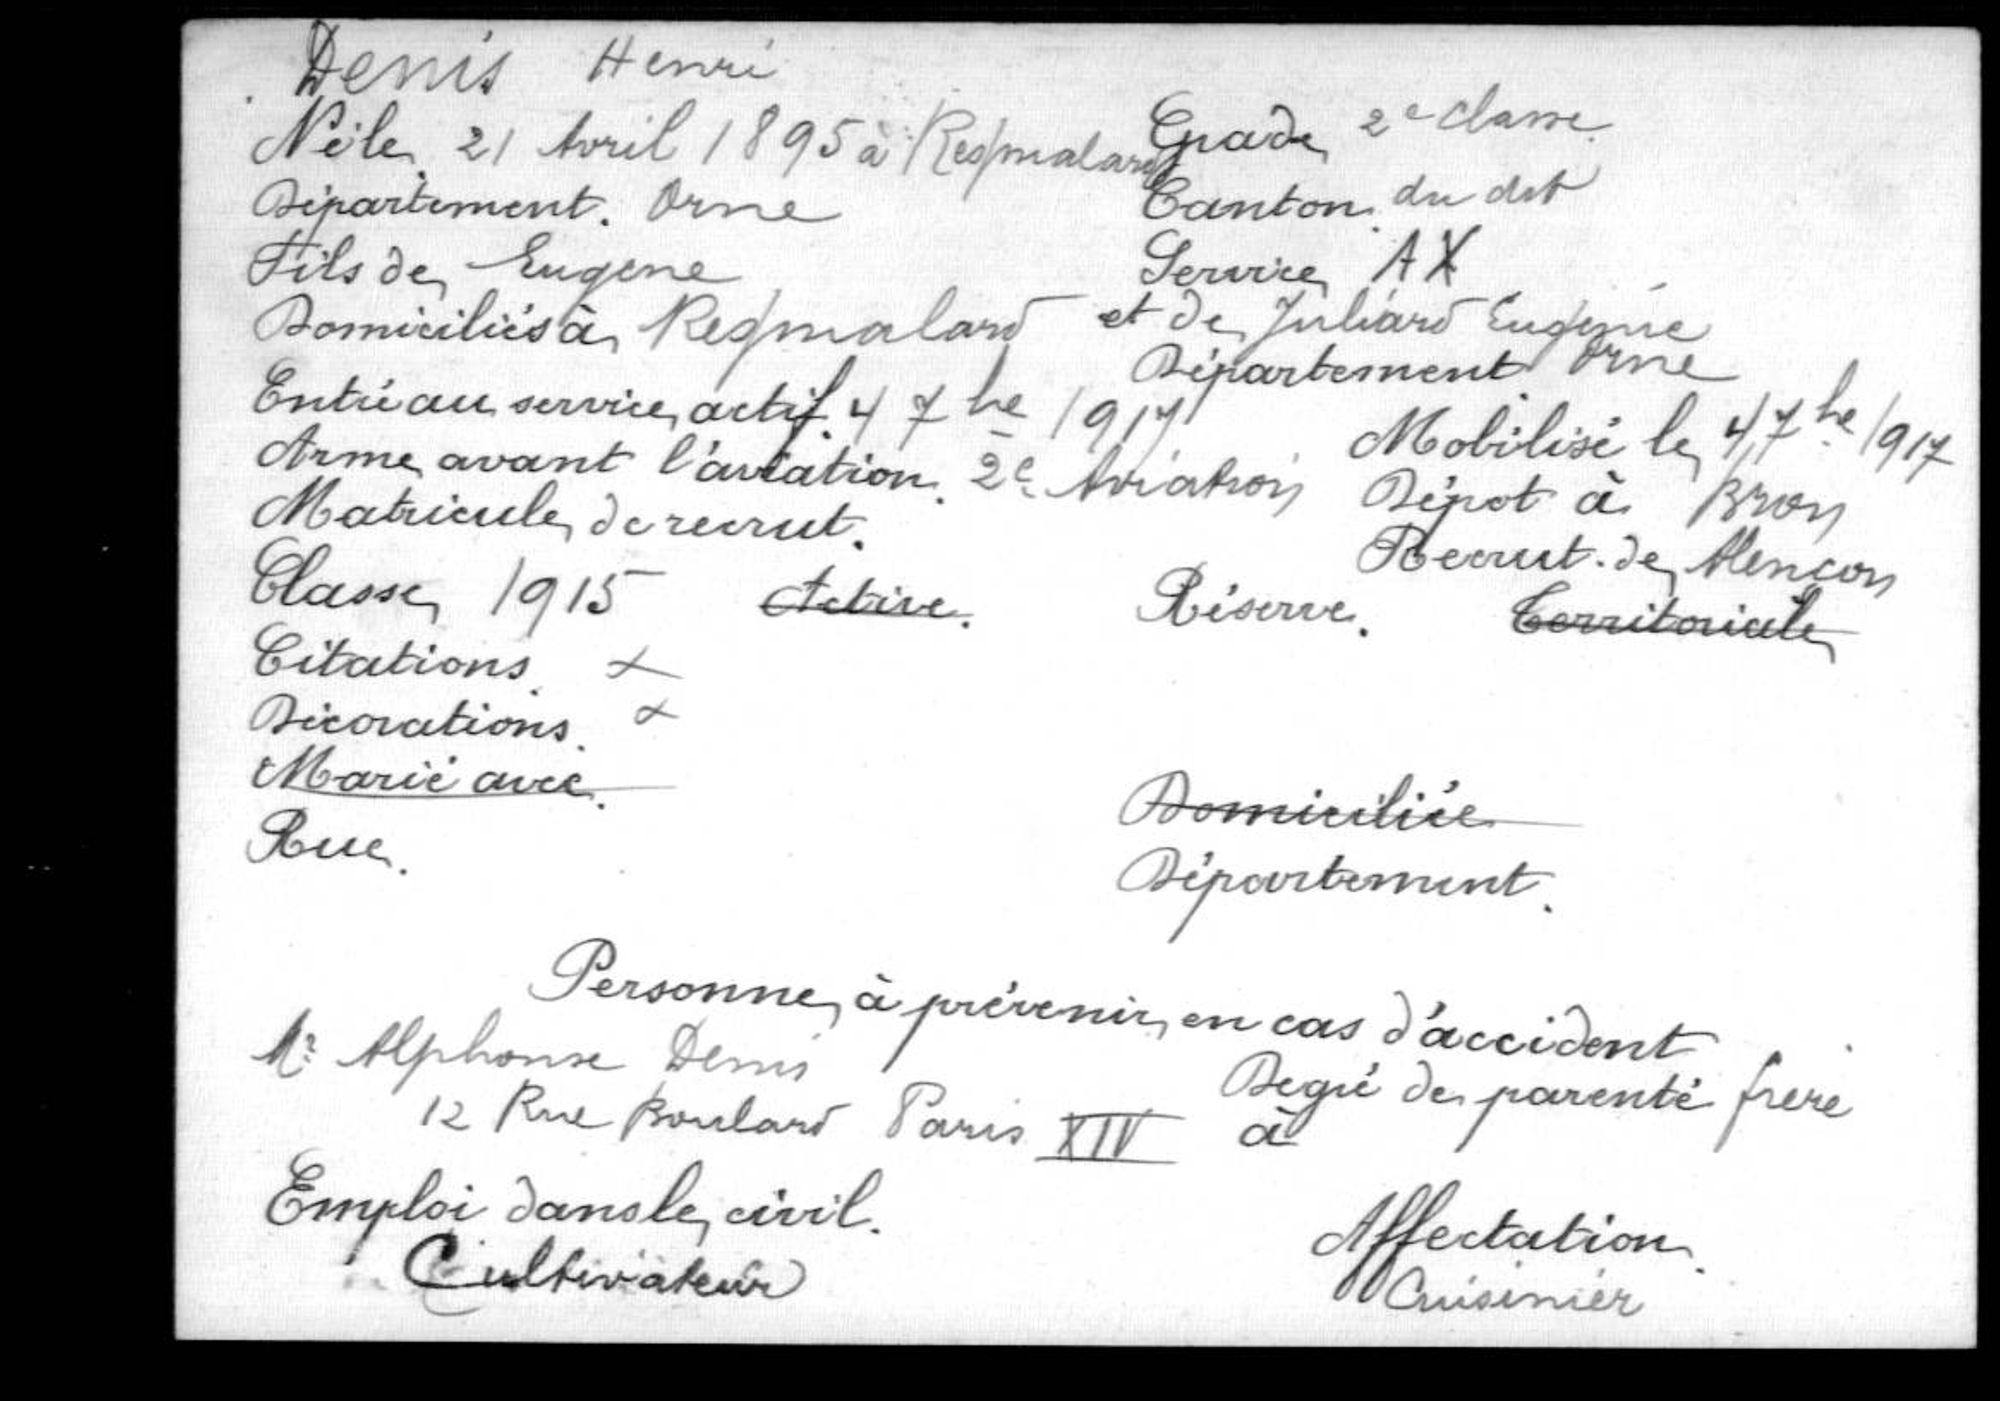 Denis Henri
Né le 21 Avril 1895 à Regmalard Grade 2e classe
Département. Orne Canton. du dit
Fils de Eugene Service A X
Domiciliés à Regmalard et de Juliard Eugenie
Département Orne
Entré au service actif. 4 7bre 1917 Mobilisé le 4 7bre 1917
Arme avant l'aviation. 2e Aviation Dépot à Bron
Matricule de recrut. Recrut. de Alencon
Classe 1915 Active. Réserve. Territoriale
Citations.
Décorations.
Marié avec. Domiciliée
Rue. Département.
Personne à prévenir en cas d'accident
Mr Alphonse Denis Degré de parenté frere
12 Rue Boulard Paris XIV à
Emploi dans le civil. Affectation.
Cultivateur Cuisinier